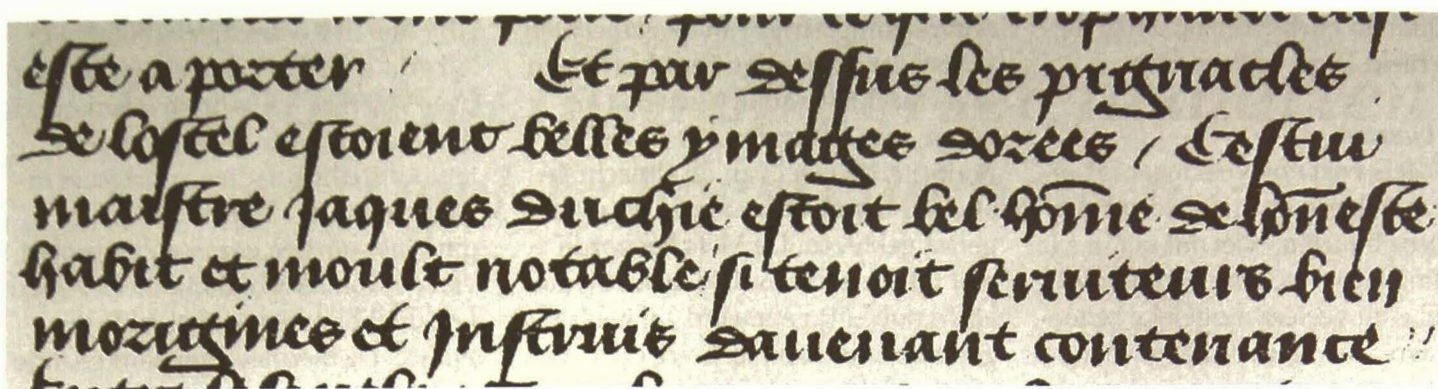 este a porter / Et par dessus les pignacles
de lostel estoient belles ymages dorees / Cestui
maistre Jaques duchie estoit bel hōme de hōneste
habit et moult notable si tenoit seruiteurs bien
morigines et Instruis dauenant contenance